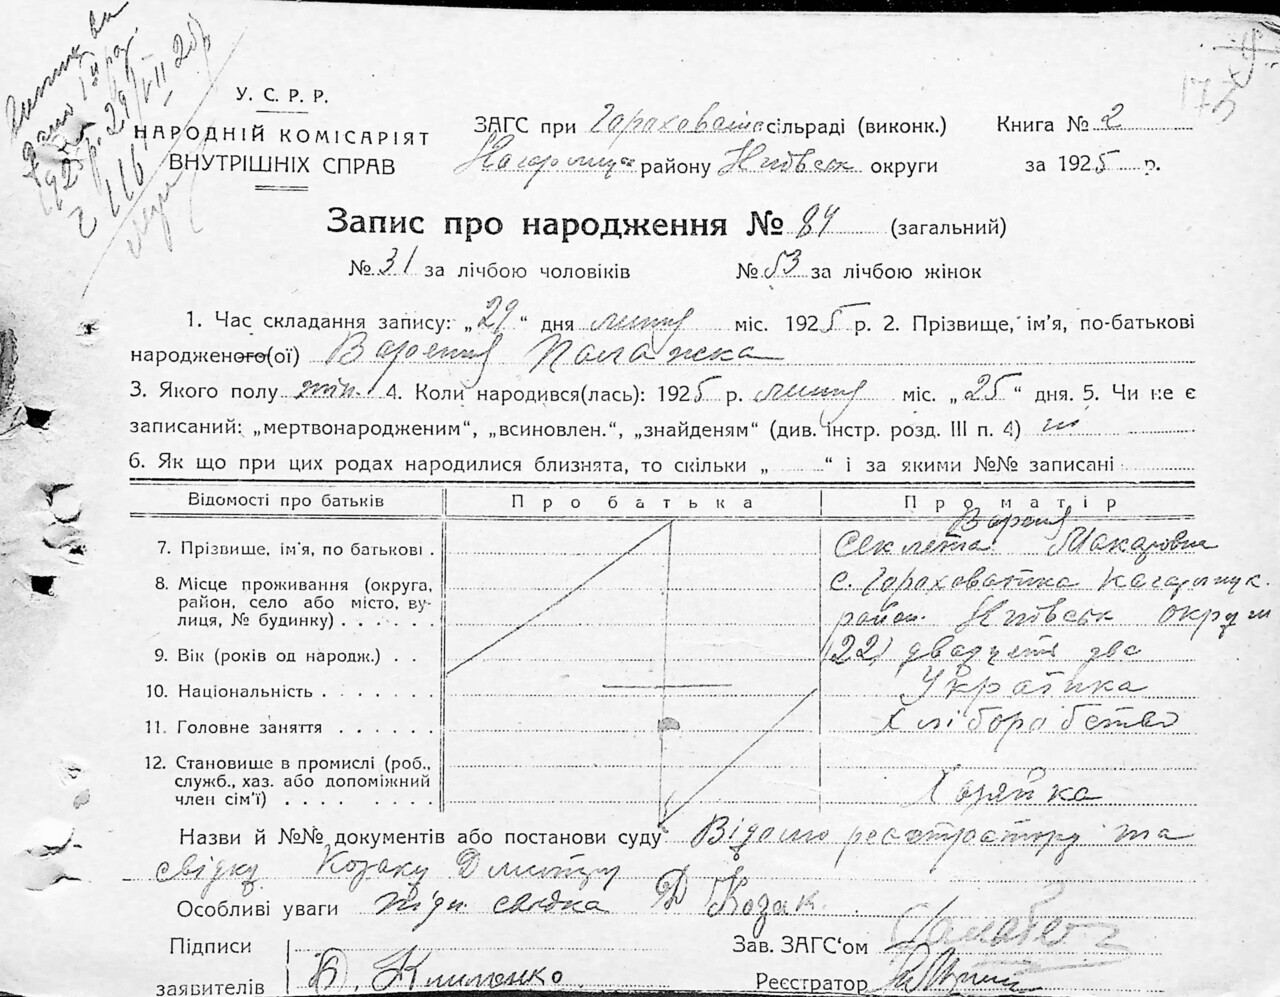 У. С. Р. Р.
НАРОДНІЙ КОМІСАРІЯТ
ВНУТРІШНІХ СПРАВ
ЗАГС при Гороховатс сільраді (виконк.) Книга № 2
району округи за 1925 р.
Запис про народження № 84 (загальний)
№ 31 за лічбою чоловіків № 53 за лічбою жінок
1. Час складання запису: „29“ дня липня міс. 1925 р. 2. Прізвище, ім'я, по-батькові
народженого(ої) Пола жка
3. Якого полу жін. 4. Коли народився(лась): 1925 р. липня міс. „25“ дня. 5. Чи не є
записаний: „мертвонародженим“, „всиновлен.“, „знайденям“ (див. інстр. розд. III п. 4) ні
6. Як що при цих родах народилися близнята, то скільки „ “ і за якими №№ записані
Відомості про батьків Про батька Про матір
7. Прізвище, ім'я, по батькові . Секлета Макаровна
8. Місце проживання (округа, с. Гороховатка
район, село або місто, ву-
лиця, № будинку) . . . . . район. округи
9. Вік (років од народж.) . . (22) двадцять два
10. Національність . . . . . . Українка
11. Головне заняття . . . . . . Хліборобство
12. Становище в промислі (роб.,
служб., хаз. або допоміжний
член сім'ї) . . . . . . . . Хазяйка
Назви й №№ документів або постанови суду Відомо реєстратору та
свідку Козаку Дмитру
Особливі уваги підп. свідка Д Козак.
Підписи Зав. ЗАГС'ом
заявителів Д. Клименко Реєстратор